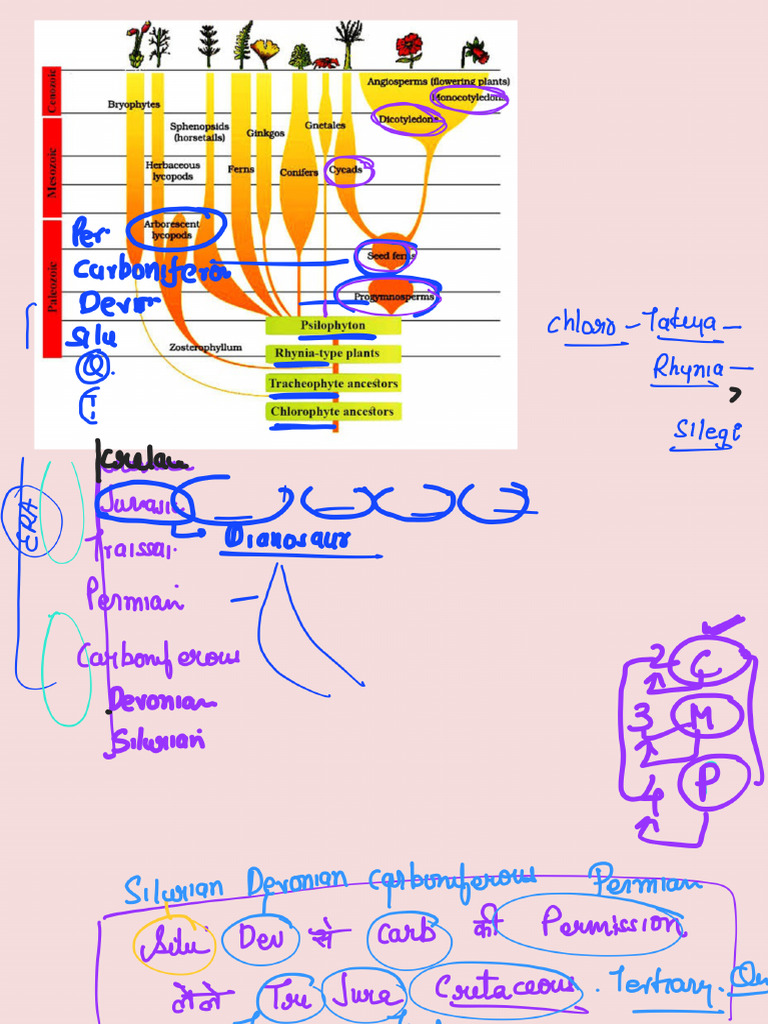 Angiosperms (flowering plants)
Monocotyledons
Bryophytes
Dicotyledons
Cenozoic
Sphenopsids
(horsetails)
Ginkgos
Gnetales
Mesozoic
Herbaceous
lycopods
Ferns
Conifers
Cycads
Arborescent
lycopods
Per
Seed ferns
Carbonifero
Paleozoic
Progymnosperms
Devo
Psilophyton
Chloro - Tatuya -
Silu
Zosterophyllum
Rhynia-type plants
Rhynia -
Tracheophyte ancestors
Chlorophyte ancestors
Silegi
ERA
Jurasic
Dianosaur
Permian
Carboniferous
Devonian
Silurian
2 C
3 M
4 P
Silurian Devonian Carboniferous Permian
Silu Dev से Carb की Permission
Jura Cretaceous . Tertiary.